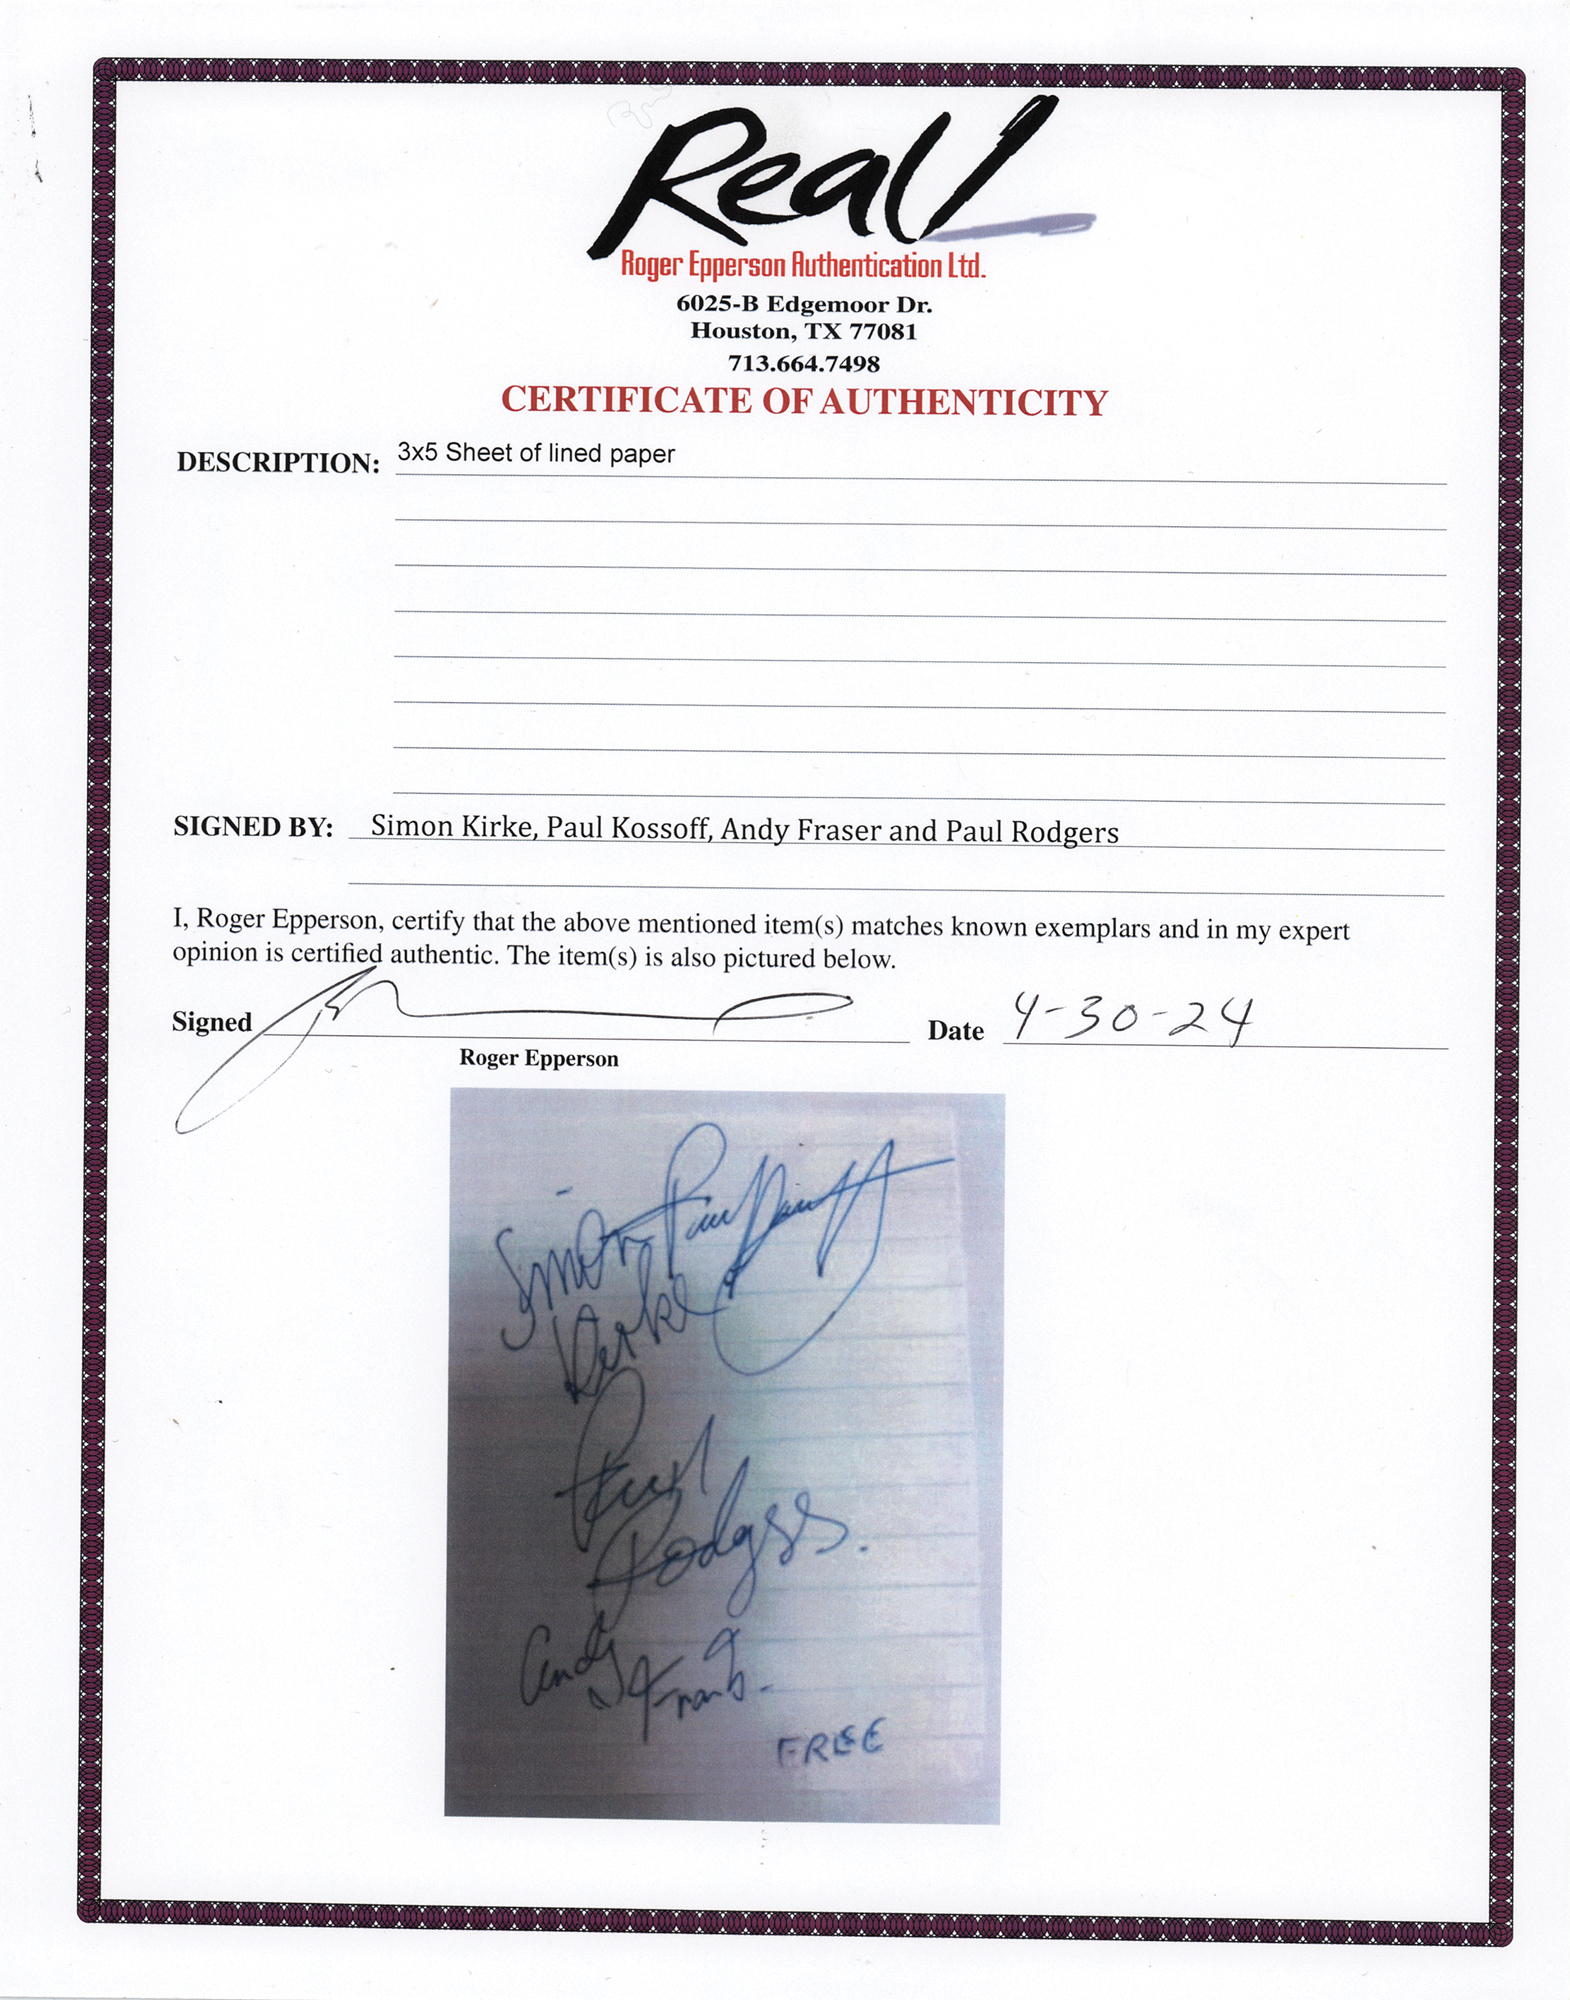 Real
Roger Epperson Authentication Ltd.
6025-B Edgemoor Dr.
Houston, TX 77081
713.664.7498
CERTIFICATE OF AUTHENTICITY
DESCRIPTION: 3x5 Sheet of lined paper
SIGNED BY: Simon Kirke, Paul Kossoff, Andy Fraser and Paul Rodgers
I, Roger Epperson, certify that the above mentioned item(s) matches known exemplars and in my expert
opinion is certified authentic. The item(s) is also pictured below.
Signed Date 4-30-24
Roger Epperson
Simon Paul
Kirke
Paul
Rodgers.
Andy
FREE